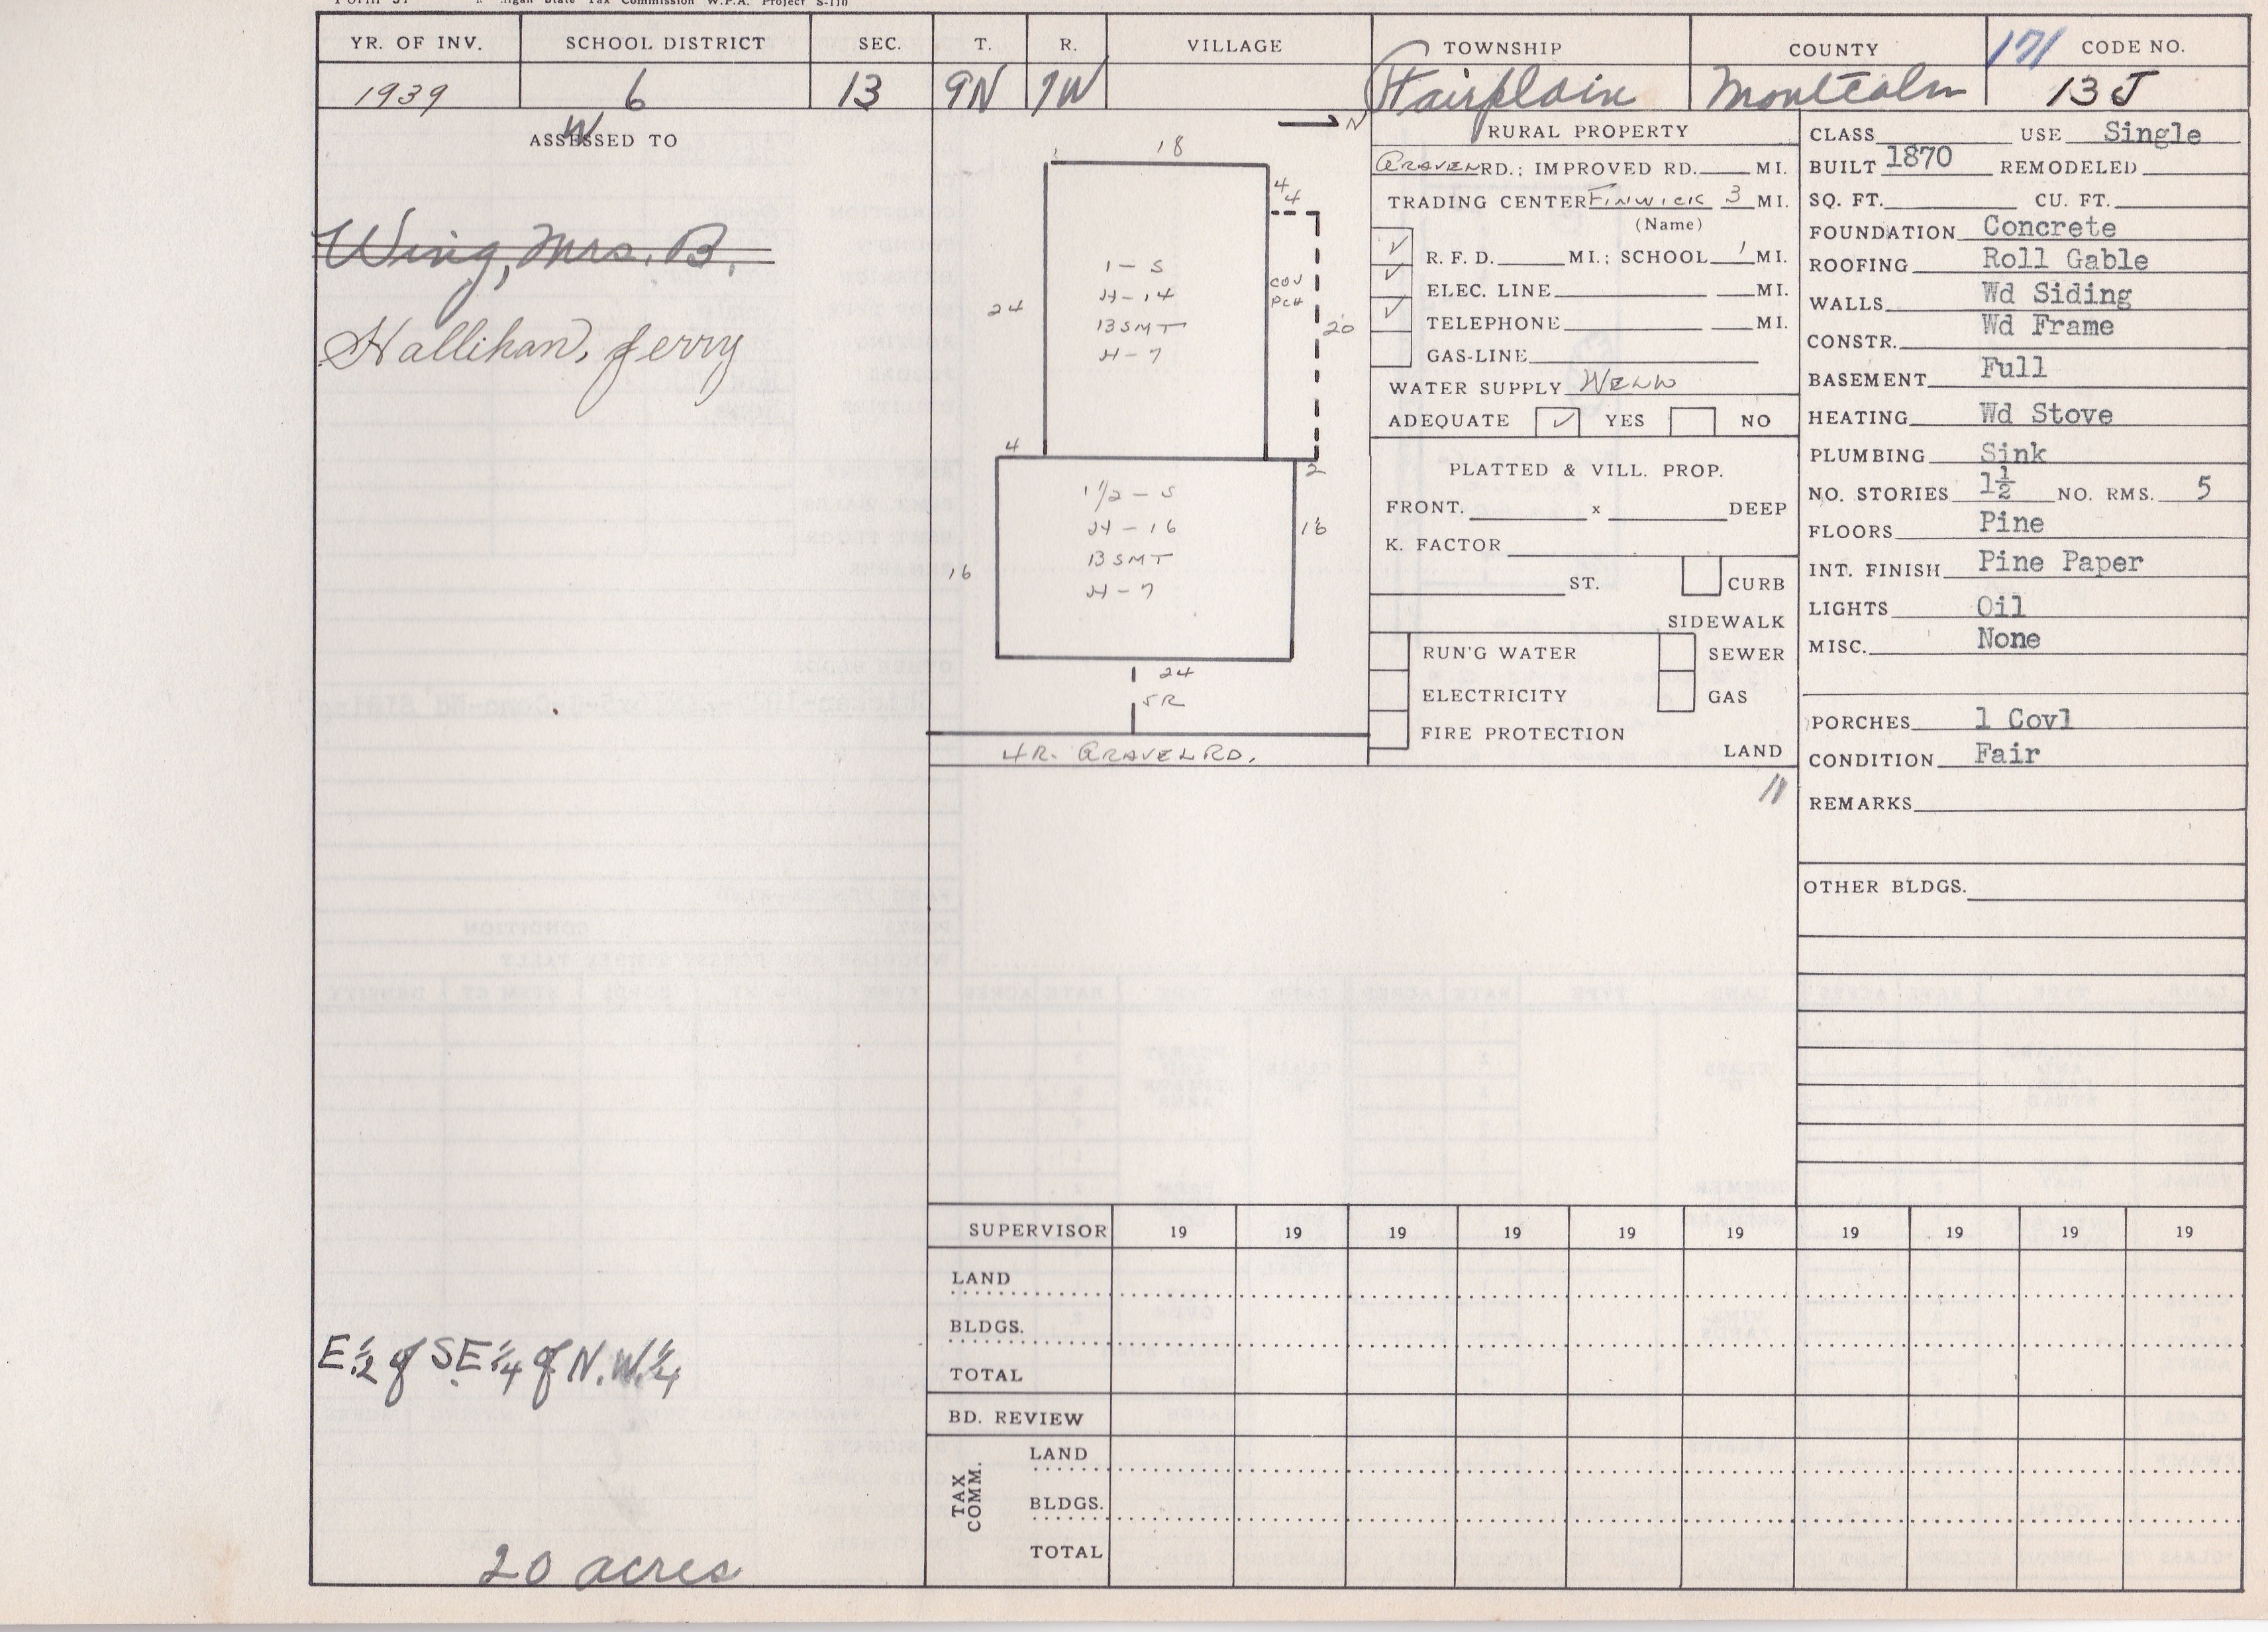 State Tax Commission W.P.A. Project S-110
YR. OF INV. SCHOOL DISTRICT SEC. T. R. VILLAGE TOWNSHIP COUNTY 171 CODE NO.
1939 6 13 9N 7W Fairplain Montcalm 13 J
W
ASSESSED TO
Wing, Mrs. B.
Hallihan, Jerry
E 1/2 of S.E 1/4 of N.W. 1/4
20 acres
N
18
4
4
1 - S
H - 14
BSMT
H - 7
24
COV
PCH
20
4
2
1 1/2 - S
H - 16
BSMT
H - 7
16
16
24
5R
4R. GRAVEL RD.
RURAL PROPERTY
GRAVEL RD.; IMPROVED RD. MI.
TRADING CENTER FINWICK 3 MI.
(Name)
✓ R. F. D. MI.; SCHOOL 1 MI.
✓ ELEC. LINE MI.
✓ TELEPHONE MI.
GAS-LINE
WATER SUPPLY WELL
ADEQUATE ✓ YES NO
PLATTED & VILL. PROP.
FRONT. x DEEP
K. FACTOR
ST. CURB
SIDEWALK
RUN'G WATER SEWER
ELECTRICITY GAS
FIRE PROTECTION
LAND
11
CLASS USE Single
BUILT 1870 REMODELED
SQ. FT. CU. FT.
FOUNDATION Concrete
ROOFING Roll Gable
WALLS Wd Siding
CONSTR. Wd Frame
BASEMENT Full
HEATING Wd Stove
PLUMBING Sink
NO. STORIES 1½ NO. RMS. 5
FLOORS Pine
INT. FINISH Pine Paper
LIGHTS Oil
MISC. None
PORCHES 1 Covl
CONDITION Fair
REMARKS
OTHER BLDGS.
SUPERVISOR 19 19 19 19 19 19 19 19 19 19
LAND
BLDGS.
TOTAL
BD. REVIEW
TAX COMM.
LAND
BLDGS.
TOTAL